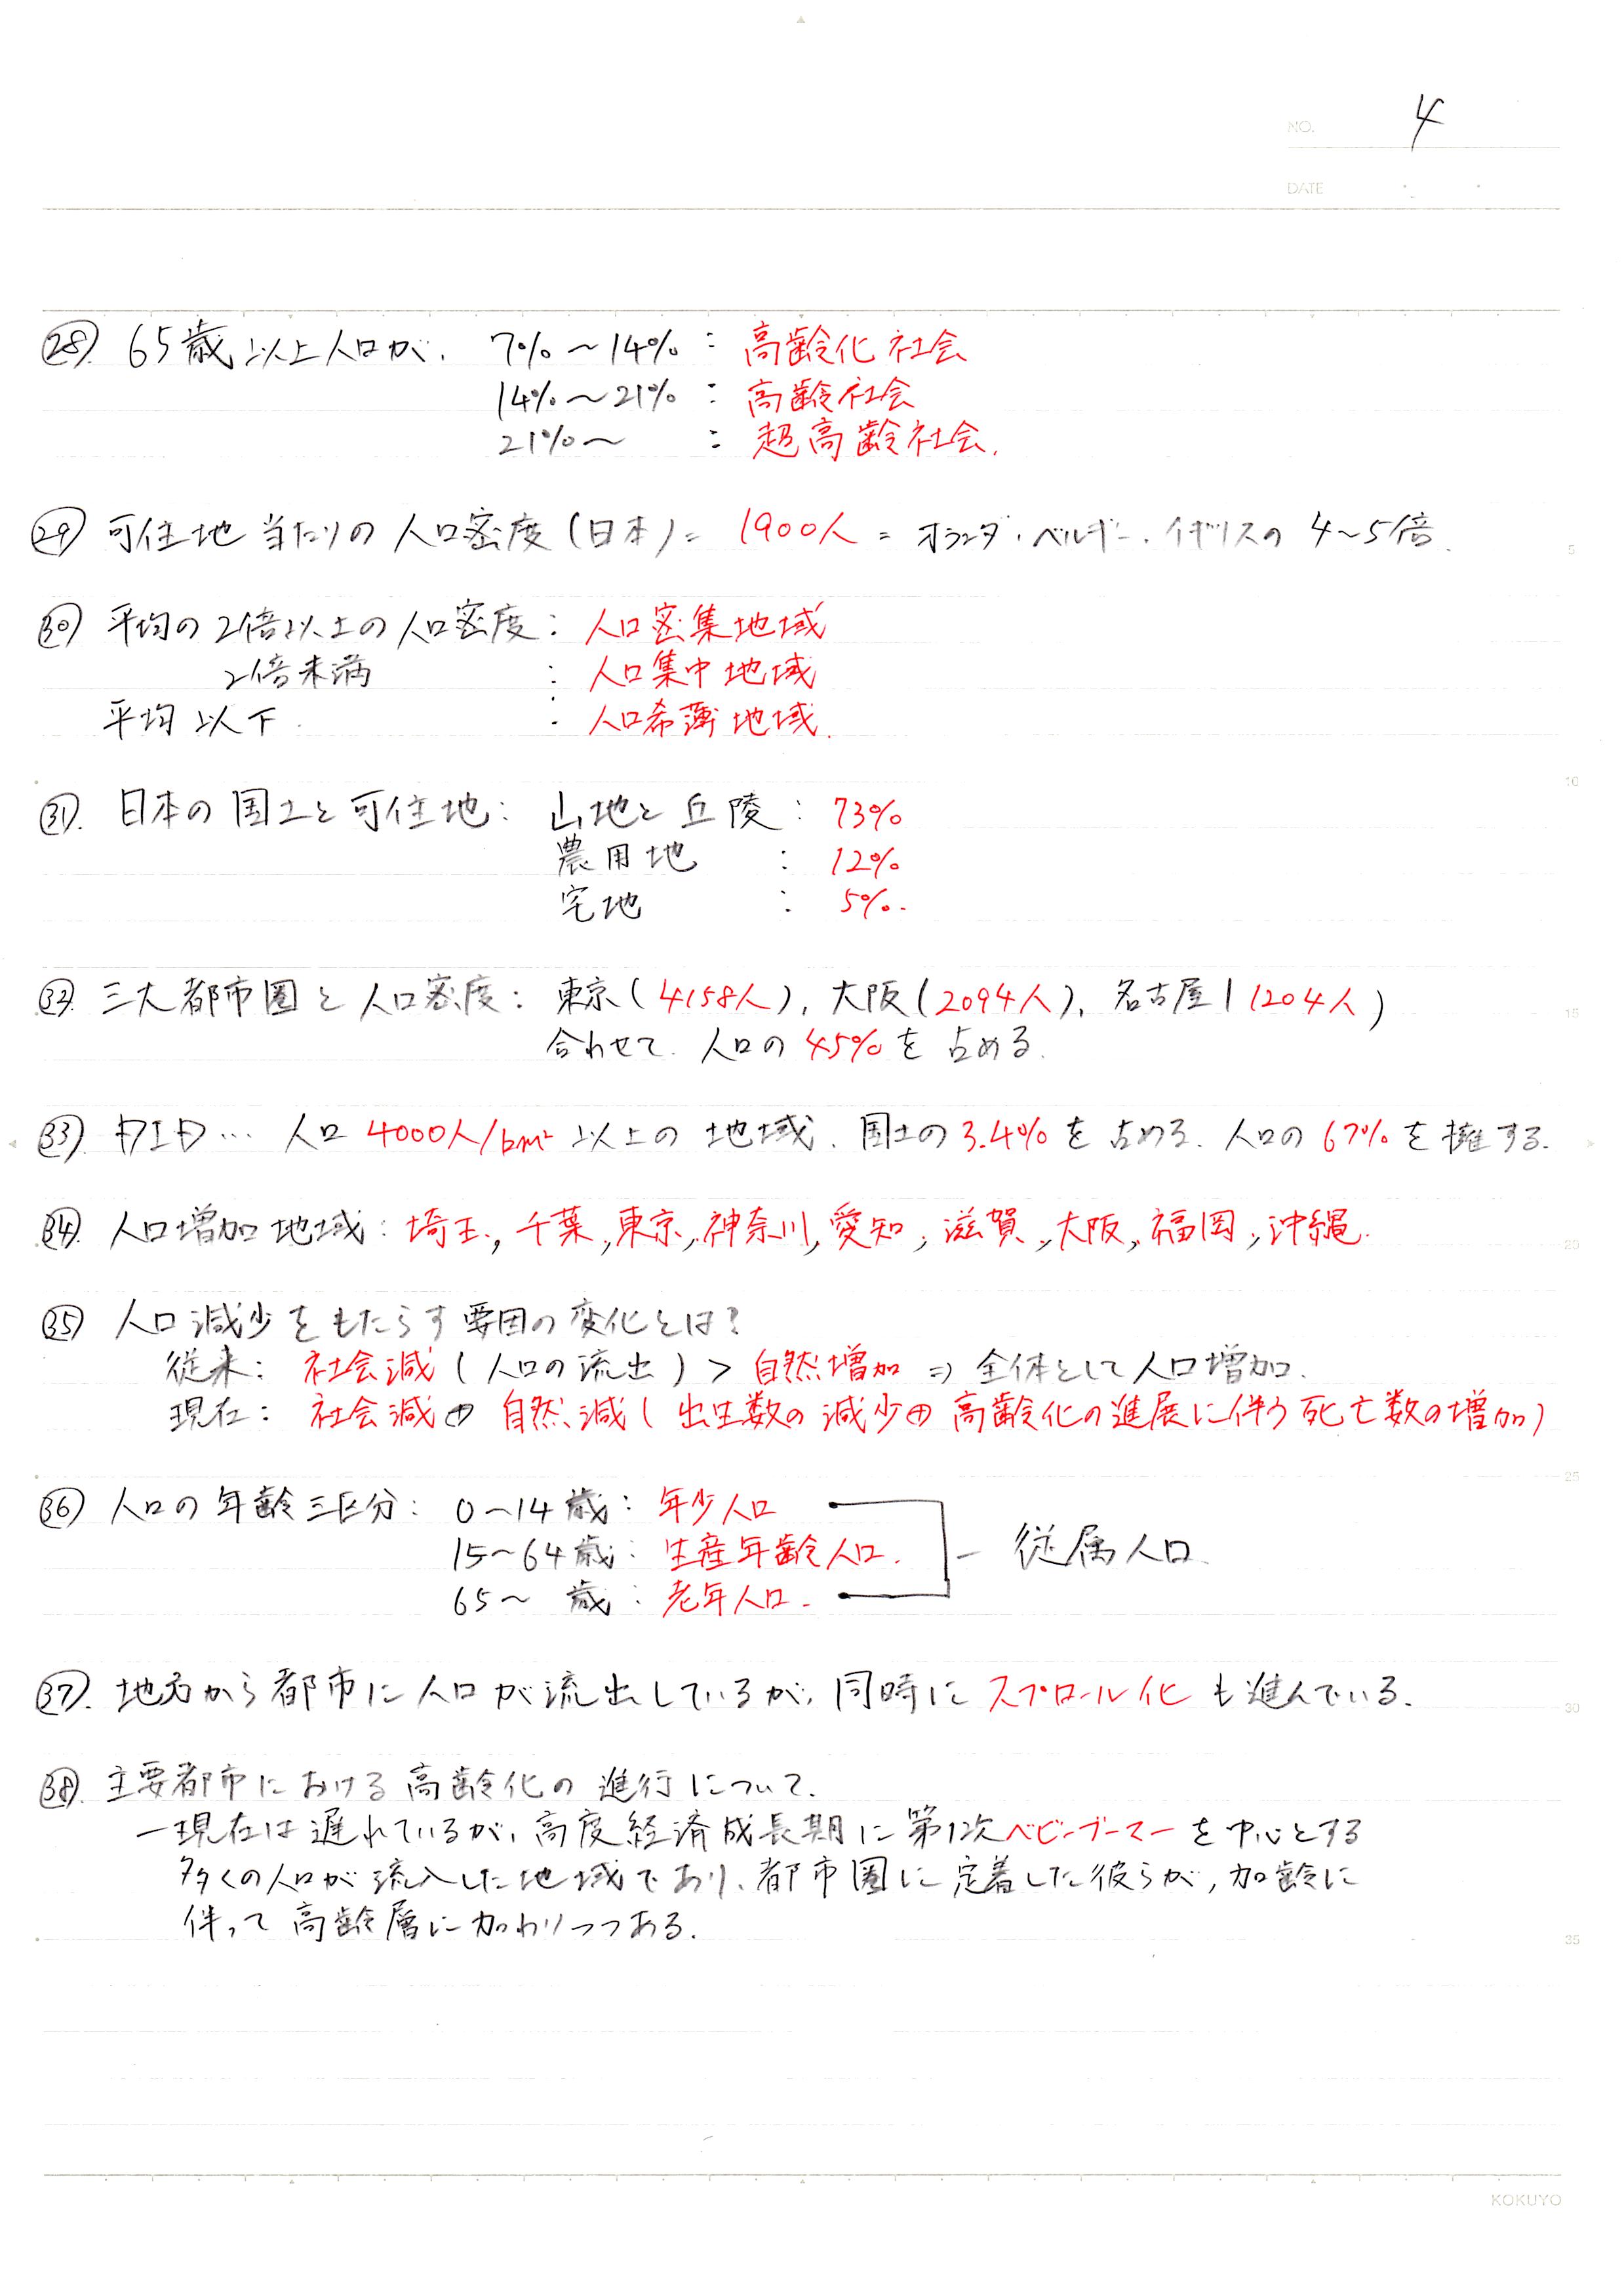 NO. 4
DATE
㉘. 65歳以上人口が、 7%〜14% : 高齢化社会
14%〜21% : 高齢社会
21%〜 : 超高齢社会.
㉙ 可住地当たりの人口密度(日本) = 1900人 = オランダ・ベルギー・イギリスの4〜5倍.
㉚ 平均の2倍以上の人口密度 : 人口密集地域
2倍未満 : 人口集中地域
平均以下 : 人口希薄地域.
㉛. 日本の国土と可住地 : 山地と丘陵 : 73%
農用地 : 12%
宅地 : 5%.
㉜. 三大都市圏と人口密度 : 東京(4158人), 大阪(2094人), 名古屋(1204人)
合わせて、人口の45%を占める.
㉝. DID… 人口4000人/km²以上の地域. 国土の3.4%を占める. 人口の67%を擁する.
㉞. 人口増加地域 : 埼玉, 千葉, 東京, 神奈川, 愛知, 滋賀, 大阪, 福岡, 沖縄.
㉟ 人口減少をもたらす要因の変化とは?
従来 : 社会減(人口の流出) > 自然増加 ⇒ 全体として人口増加.
現在 : 社会減⊕自然減(出生数の減少⊕高齢化の進展に伴う死亡数の増加)
㊱ 人口の年齢三区分 : 0〜14歳 : 年少人口
15〜64歳 : 生産年齢人口. — 従属人口.
65〜 歳 : 老年人口.
㊲. 地方から都市に人口が流出しているが、同時にスプロール化も進んでいる.
㊳. 主要都市における高齢化の進行について.
—現在は遅れているが、高度経済成長期に第1次ベビーブーマーを中心とする
多くの人口が流入した地域であり、都市圏に定着した彼らが, 加齢に
伴って高齢層に加わりつつある.
5
10
15
20
25
30
35
KOKUYO